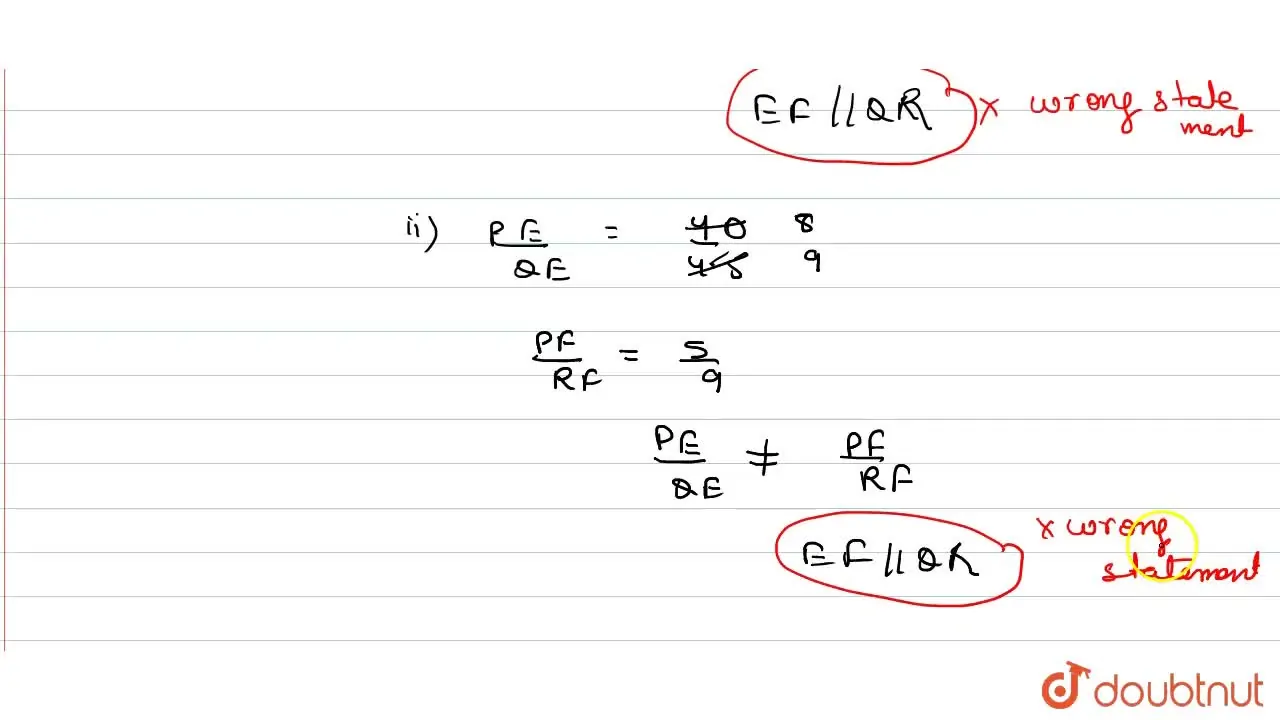 EF || QR × wrong state
ment
ii) PE = 40 8
QE 45 9
PF = 5
RF 9
PE ≠ PF
QE RF
EF || QR × wrong
statement
doubtnut